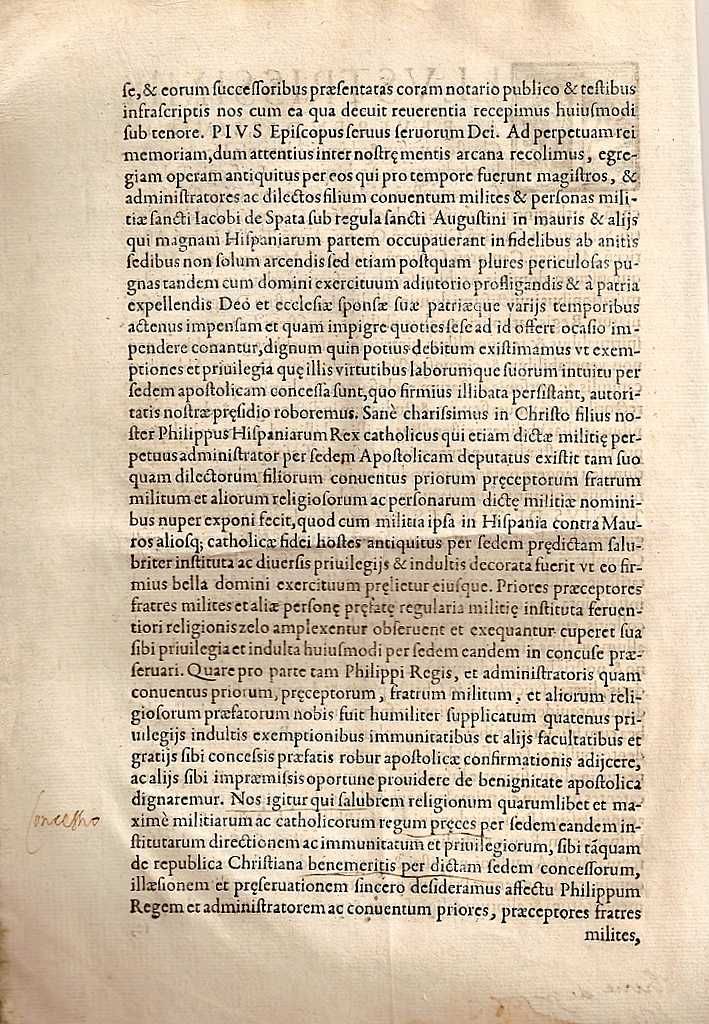 se, & eorum successoribus præsentatas coram notario publico & testibus
infrascriptis nos cum ea qua decuit reuerentia recepimus huiusmodi
sub tenore. PIVS Episcopus seruus seruorum Dei. Ad perpetuam rei
memoriam, dum attentius inter nostrę mentis arcana recolimus, egre-
giam operam antiquitus per eos qui pro tempore fuerunt magistros, &
administratores ac dilectos filium conuentum milites & personas mili-
tiæ sancti Iacobi de Spata sub regula sancti Augustini in mauris & alijs
qui magnam Hispaniarum partem occupauerant infidelibus ab anitis
sedibus non solum arcendis sed etiam postquam plures periculosas pu-
gnas tandem cum domini exercituum adiutorio profligandis & à patria
expellendis Deo et ecclesiæ sponsæ suæ patriæque varijs temporibus
actenus impensam et quam impigre quoties sese ad id offert ocasio im-
pendere conantur, dignum quin potius debitum existimamus vt exem-
ptiones et priuilegia quę illis virtutibus laborumque suorum intuitu per
sedem apostolicam concessa sunt, quo firmius illibata persistant, autori-
tatis nostræ pręsidio roboremus. Sanè charissimus in Christo filius no-
ster Philippus Hispaniarum Rex catholicus qui etiam dictæ militię per-
petuus administrator per sedem Apostolicam deputatus existit tam suo
quam dilectorum filiorum conuentus priorum pręceptorum fratrum
militum et aliorum religiosorum ac personarum dictę militiæ nomini-
bus nuper exponi fecit, quod cum militia ipsa in Hispania contra Mau-
ros aliosq; catholicæ fidei hostes antiquitus per sedem prędictam salu-
briter instituta ac diuersis priuilegijs & indultis decorata fuerit vt eo fir-
mius bella domini exercituum prelietur eiusque. Priores præceptores
fratres milites et aliæ personę pręfatę regularia militię instituta feruen-
tiori religionis zelo amplexentur obseruent et exequantur cuperet sua
sibi priuilegia et indulta huiusmodi per sedem eandem in concuse præ-
seruari. Quare pro parte tam Philippi Regis, et administratoris quam
conuentus priorum, pręceptorum, fratrum militum, et aliorum reli-
giosorum præfatorum nobis fuit humiliter supplicatum quatenus pri-
uilegijs indultis exemptionibus immunitatibus et alijs facultatibus et
gratijs sibi concessis præfatis robur apostolicæ confirmationis adijcere,
ac alijs sibi impræmissis oportune prouidere de benignitate apostolica
dignaremur. Nos igitur qui salubrem religionum quarumlibet et ma-
ximè militiarum ac catholicorum regum pręces per sedem eandem in-
Concessio
stitutarum directionem ac immunitatum et priuilegiorum, sibi tãquam
de republica Christiana benemeritis per dictam sedem concessorum,
illæsionem et pręseruationem sincero desideramus affectu Philippum
Regem et administratorem ac conuentum priores, præceptores fratres
milites,